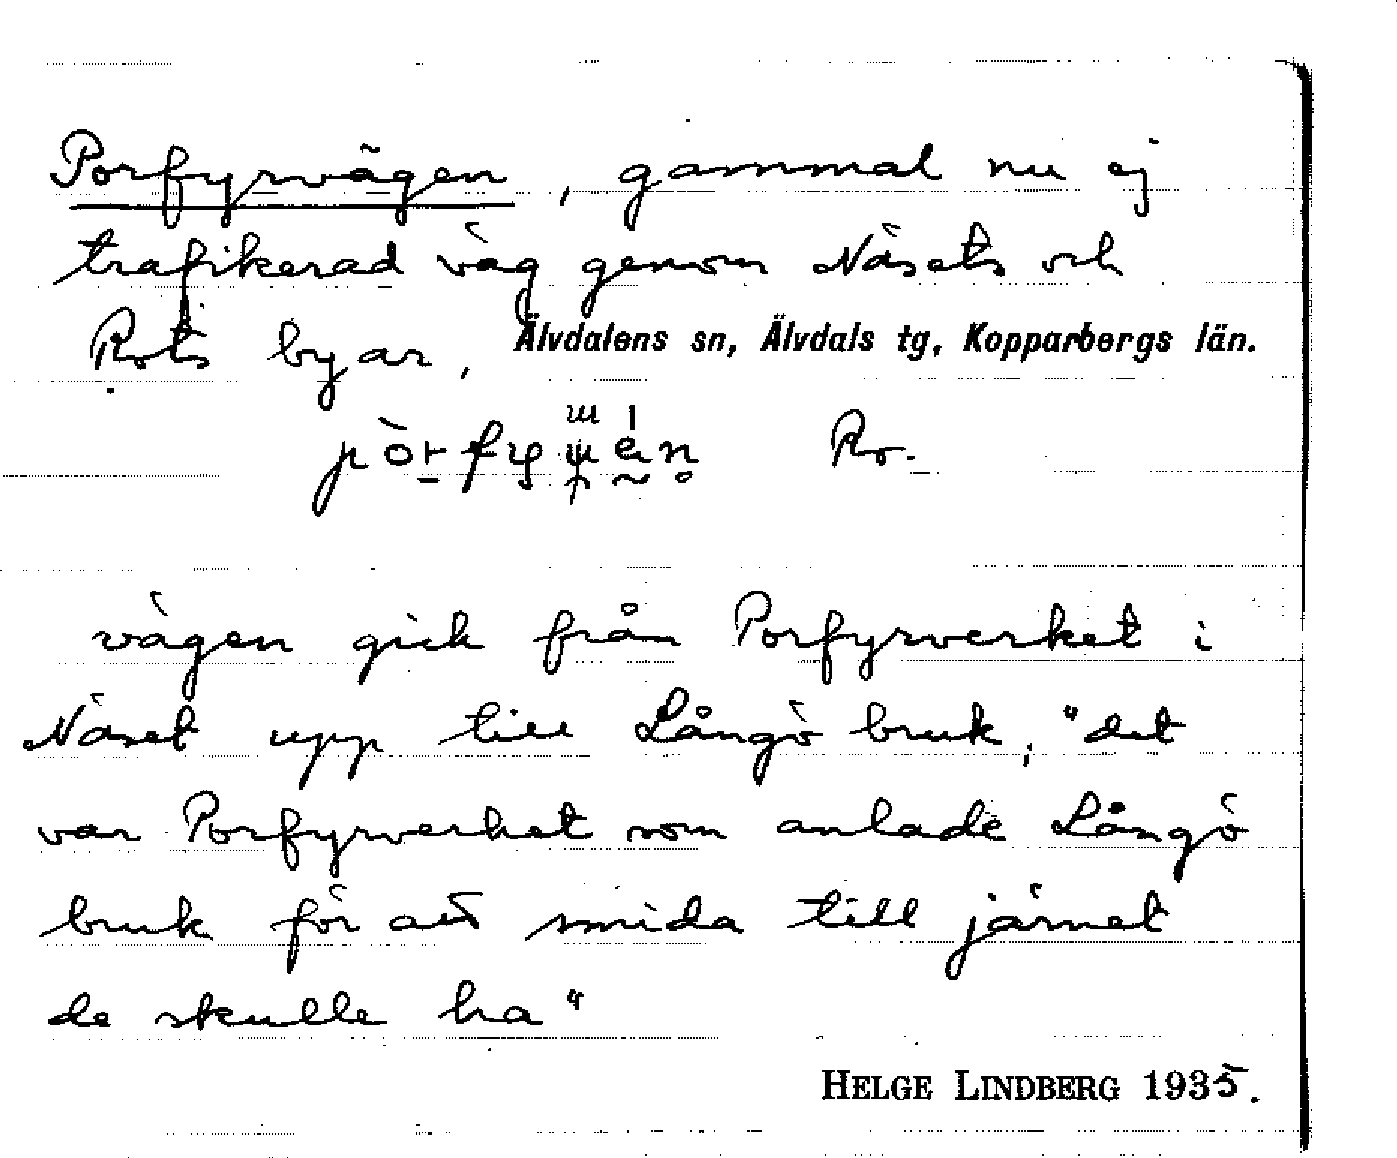 Porfyrvägen, gammal nu ej
trafikerad väg genom Näsets och
Rots byar, Älvdalens sn, Älvdals tg, Kopparbergs län.
Ro.
vägen gick från Porfyrverket i
Näset upp till Långö bruk, "det
var Porfyrverket som anlade Långö
bruk för att smida till järnet
de skulle ha"
HELGE LINDBERG 1935.